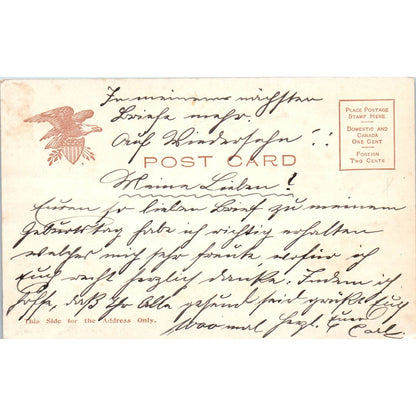 In meinem nächsten
Briefe mehr.
Auf Wiedersehn!!
PLACE POSTAGE
STAMP HERE
DOMESTIC AND
CANADA
ONE CENT
FOREIGN
TWO CENTS
POST CARD
Meine Lieben!
Euren so lieben Brief zu meinem
Geburtstag habe ich richtig erhalten
welcher mich sehr freute, wofür ich
Euch recht herzlich danke. Indem ich
hoffe, daß Ihr Alle gesund seid grüßt Euch
This Side for the Address Only.
1000 mal herzl. Euer
Carl.